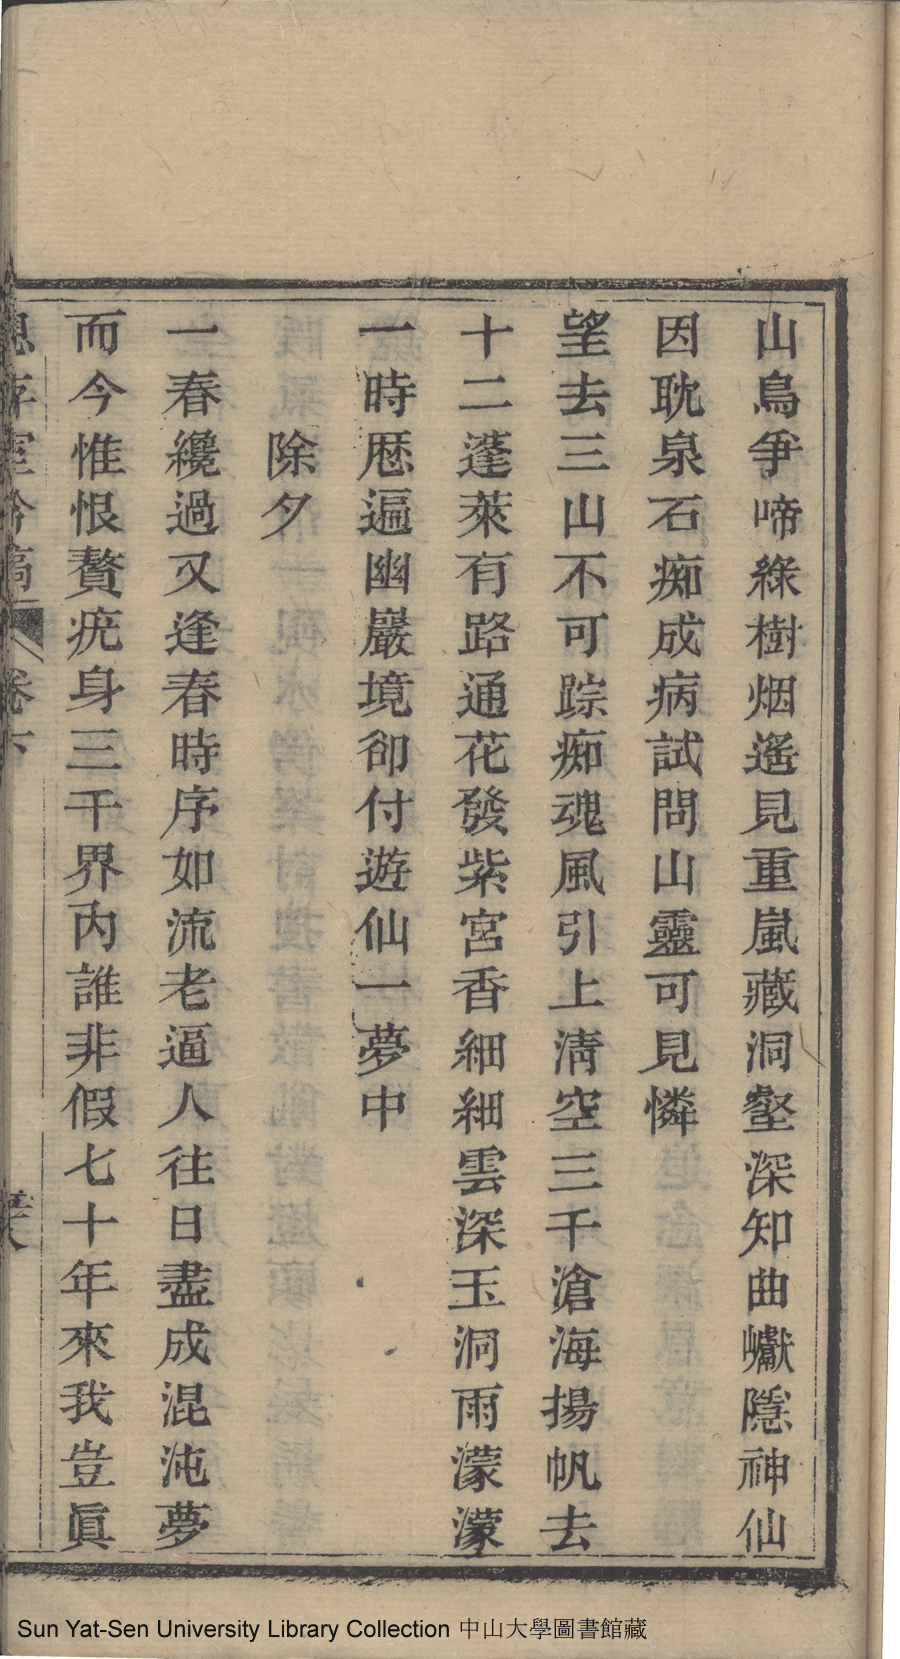 山鳥爭啼綠樹烟遙見重嵐藏洞壑深知曲巘隱神仙
因耽泉石痴成病試問山靈可見憐
望去三山不可踪痴魂風引上淸空三千滄海揚帆去
十二蓬萊有路通花發紫宮香細細雲深玉洞雨濛濛
一時歷遍幽巖境卻付遊仙一夢中
除夕
一春纔過又逢春時序如流老逼人往日盡成混沌夢
而今惟恨贅疣身三千界內誰非假七十年來我豈眞
卷下
Sun Yat-Sen University Library Collection 中山大學圖書館藏